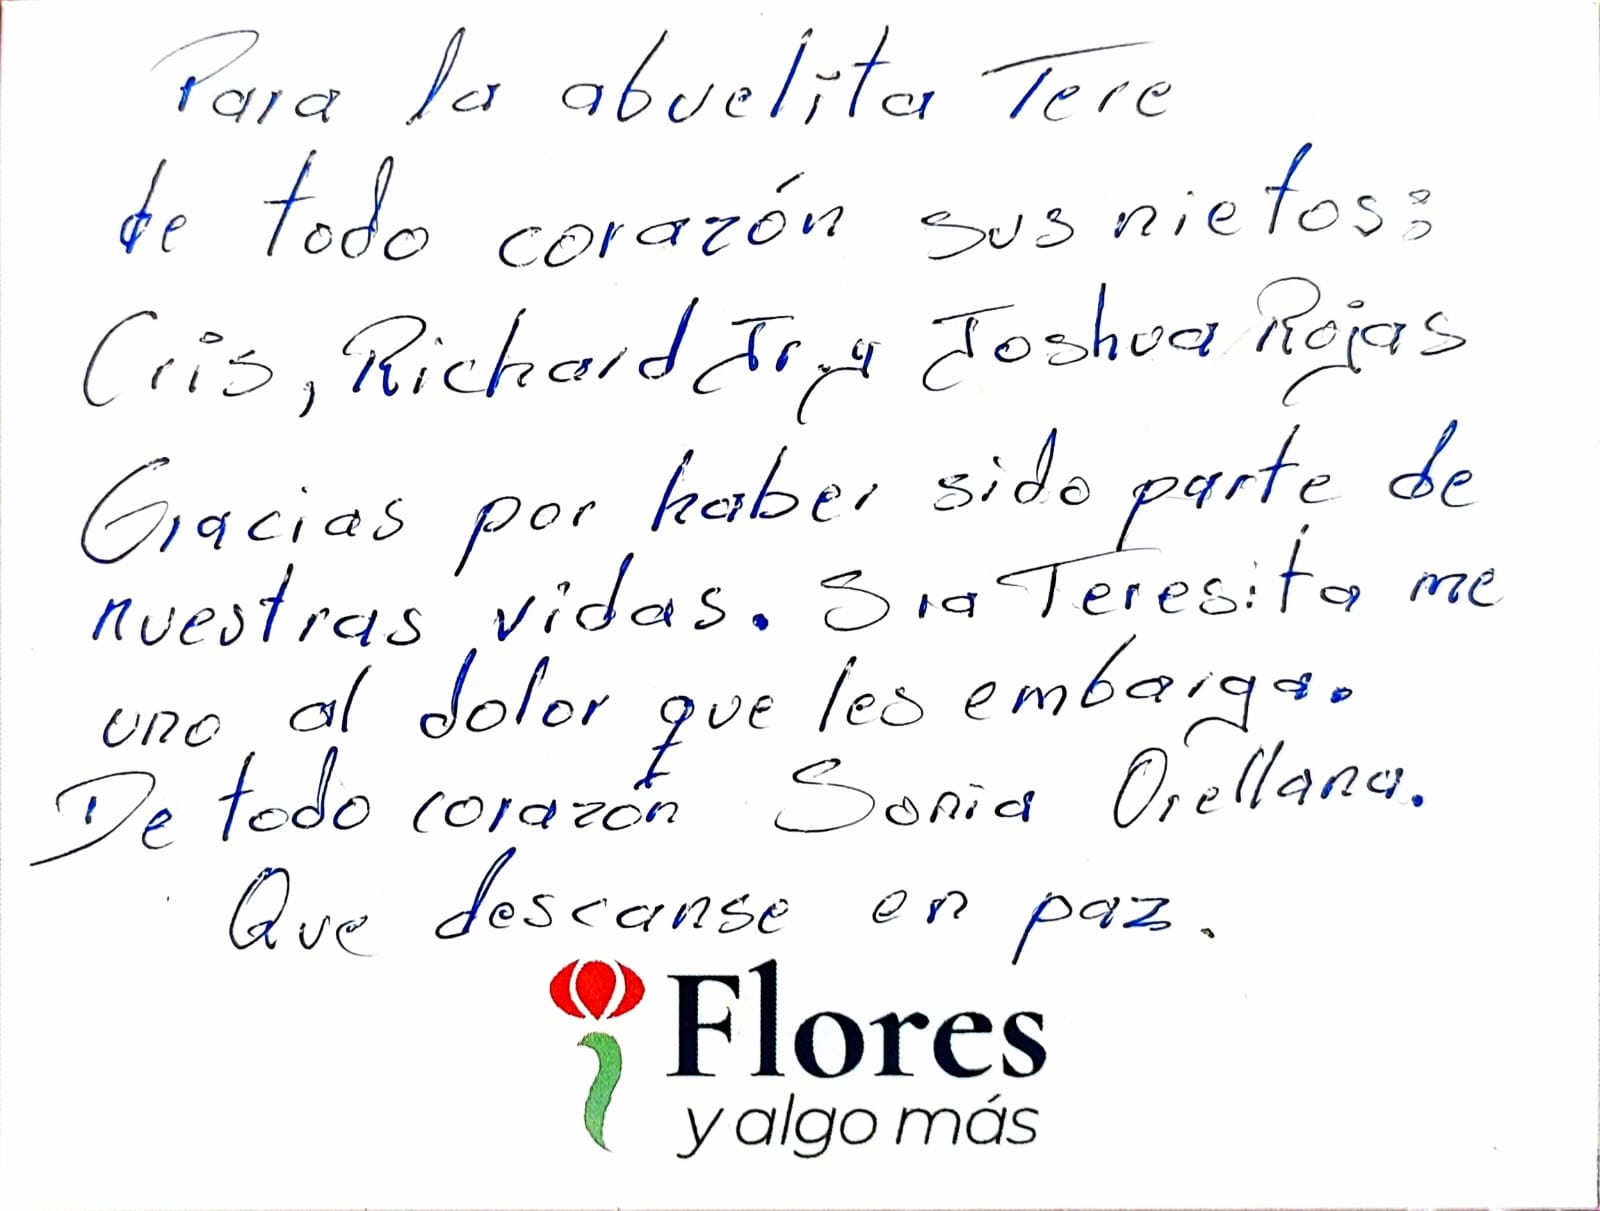 Para la abuelita Tere
de todo corazón sus nietos:
Cris, Richard Jr. y Joshua Rojas
Gracias por haber sido parte de
nuestras vidas. Sra Teresita me
uno al dolor que les embarga.
De todo corazón Sonia Orellana.
Que descanse en paz.
Flores
y algo más